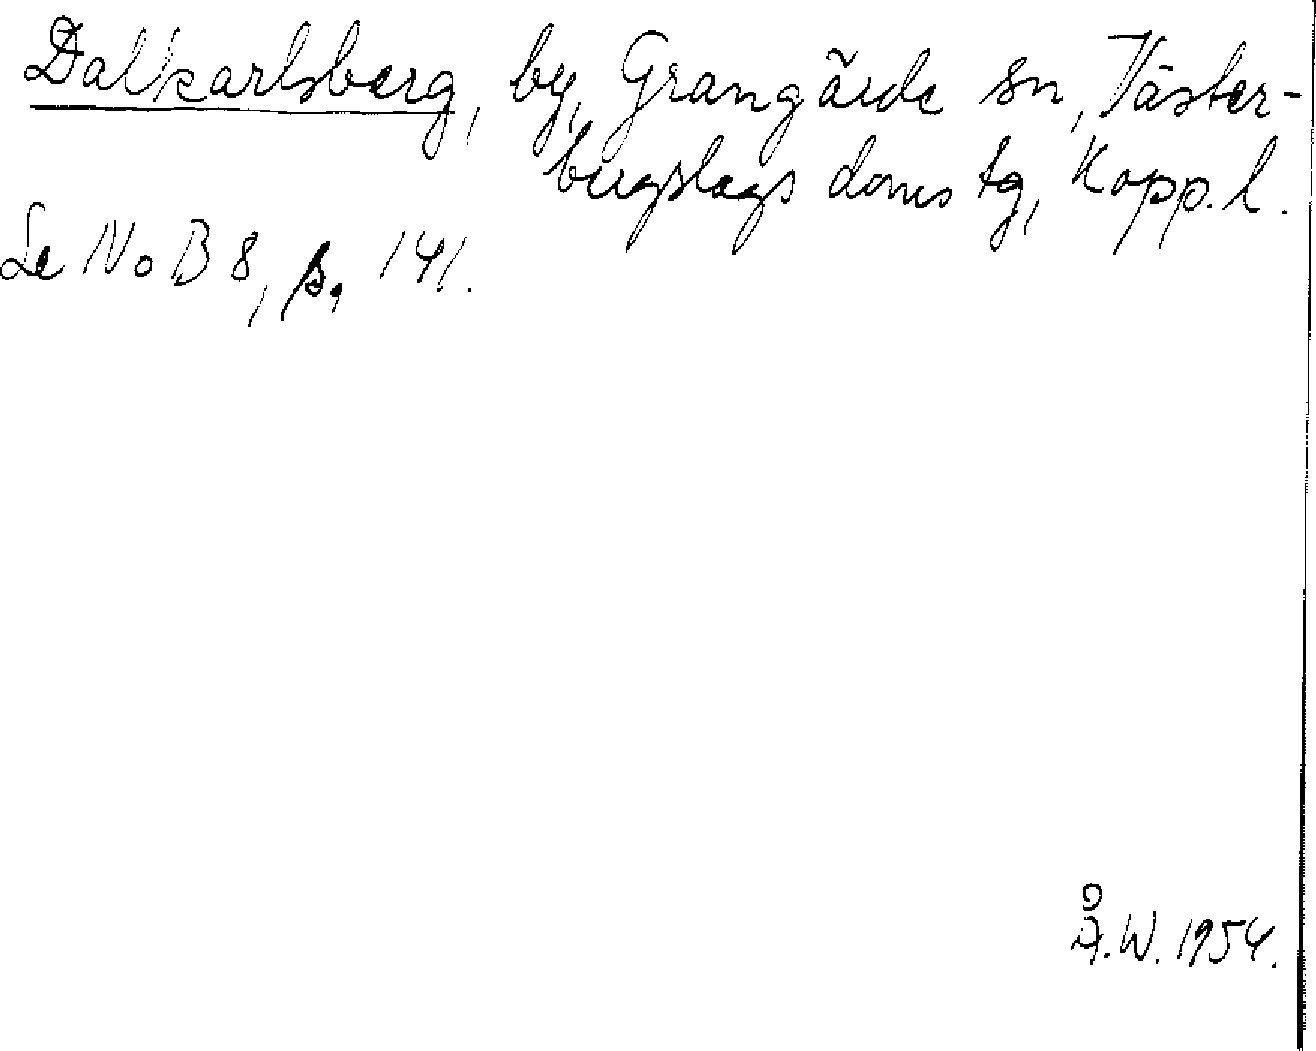 Dalkarlsberg, by, Grangärde sn, Väster-
bergslags doms tg, Kopp. l.
Se NoB 8, s. 141.
Å.W. 1954.